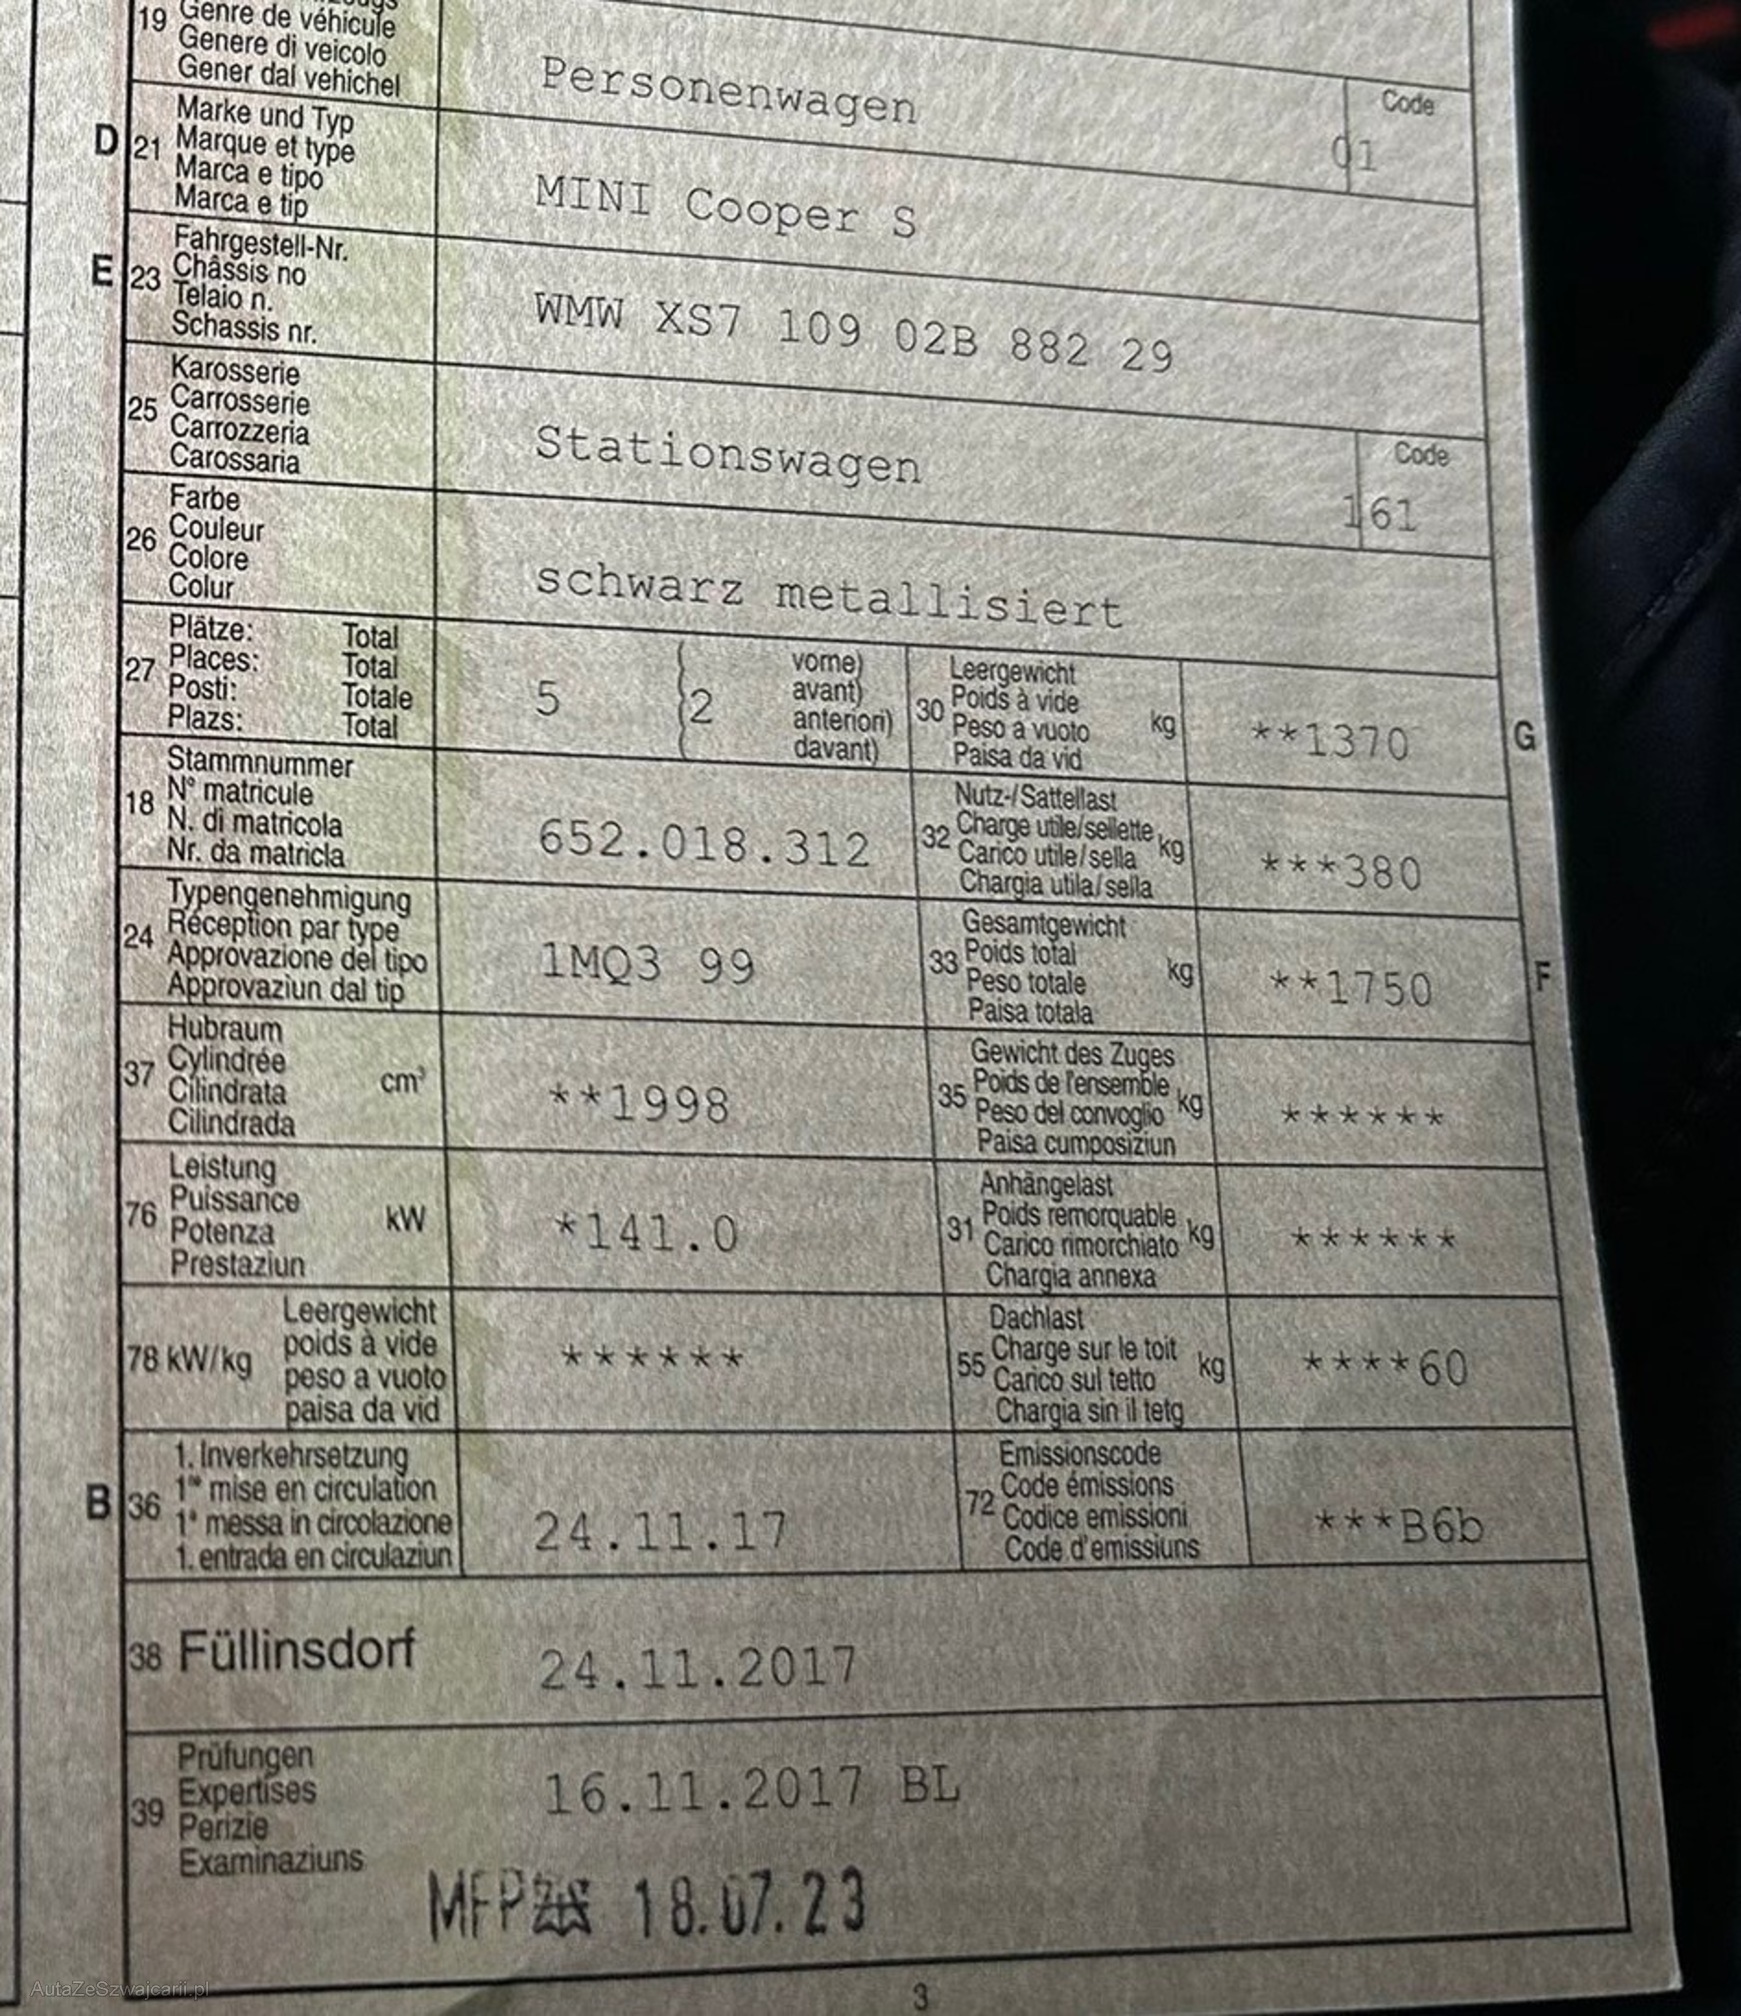 19 Genre de véhicule
Genere di veicolo
Gener dal vehichel
Personenwagen
Code
01
D 21 Marke und Typ
Marque et type
Marca e tipo
Marca e tip
MINI Cooper S
E 23 Fahrgestell-Nr.
Châssis no
Telaio n.
Schassis nr.
WMW XS7 109 02B 882 29
25 Karosserie
Carrosserie
Carrozzeria
Carossaria
Stationswagen
Code
161
26 Farbe
Couleur
Colore
Colur
schwarz metallisiert
27 Plätze: Total
Places: Total
Posti: Totale
Plazs: Total
5 2
vorne)
avant)
anteriori)
davant)
30 Leergewicht
Poids à vide
Peso a vuoto kg
Paisa da vid
**1370
G
18 Stammnummer
N° matricule
N. di matricola
Nr. da matricla
652.018.312
32 Nutz-/Sattellast
Charge utile/sellette kg
Carico utile/sella
Chargia utila/sella
***380
24 Typengenehmigung
Réception par type
Approvazione del tipo
Approvaziun dal tip
1MQ3 99
33 Gesamtgewicht
Poids total
Peso totale kg
Paisa totala
**1750
F
37 Hubraum
Cylindrée
Cilindrata cm³
Cilindrada
**1998
35 Gewicht des Zuges
Poids de l'ensemble kg
Peso del convoglio
Paisa cumposiziun
******
76 Leistung
Puissance
Potenza kW
Prestaziun
*141.0
31 Anhängelast
Poids remorquable kg
Carico rimorchiato
Chargia annexa
******
78 kW/kg Leergewicht
poids à vide
peso a vuoto
paisa da vid
******
55 Dachlast
Charge sur le toit
Carico sul tetto kg
Chargia sin il tetg
****60
B 36 1. Inverkehrsetzung
1re mise en circulation
1a messa in circolazione
1. entrada en circulaziun
24.11.17
72 Emissionscode
Code émissions
Codice emissioni
Code d'emissiuns
***B6b
38 Füllinsdorf
24.11.2017
39 Prüfungen
Expertises
Perizie
Examinaziuns
16.11.2017 BL
MFP 18.07.23
3
AutaZeSzwajcarii.pl